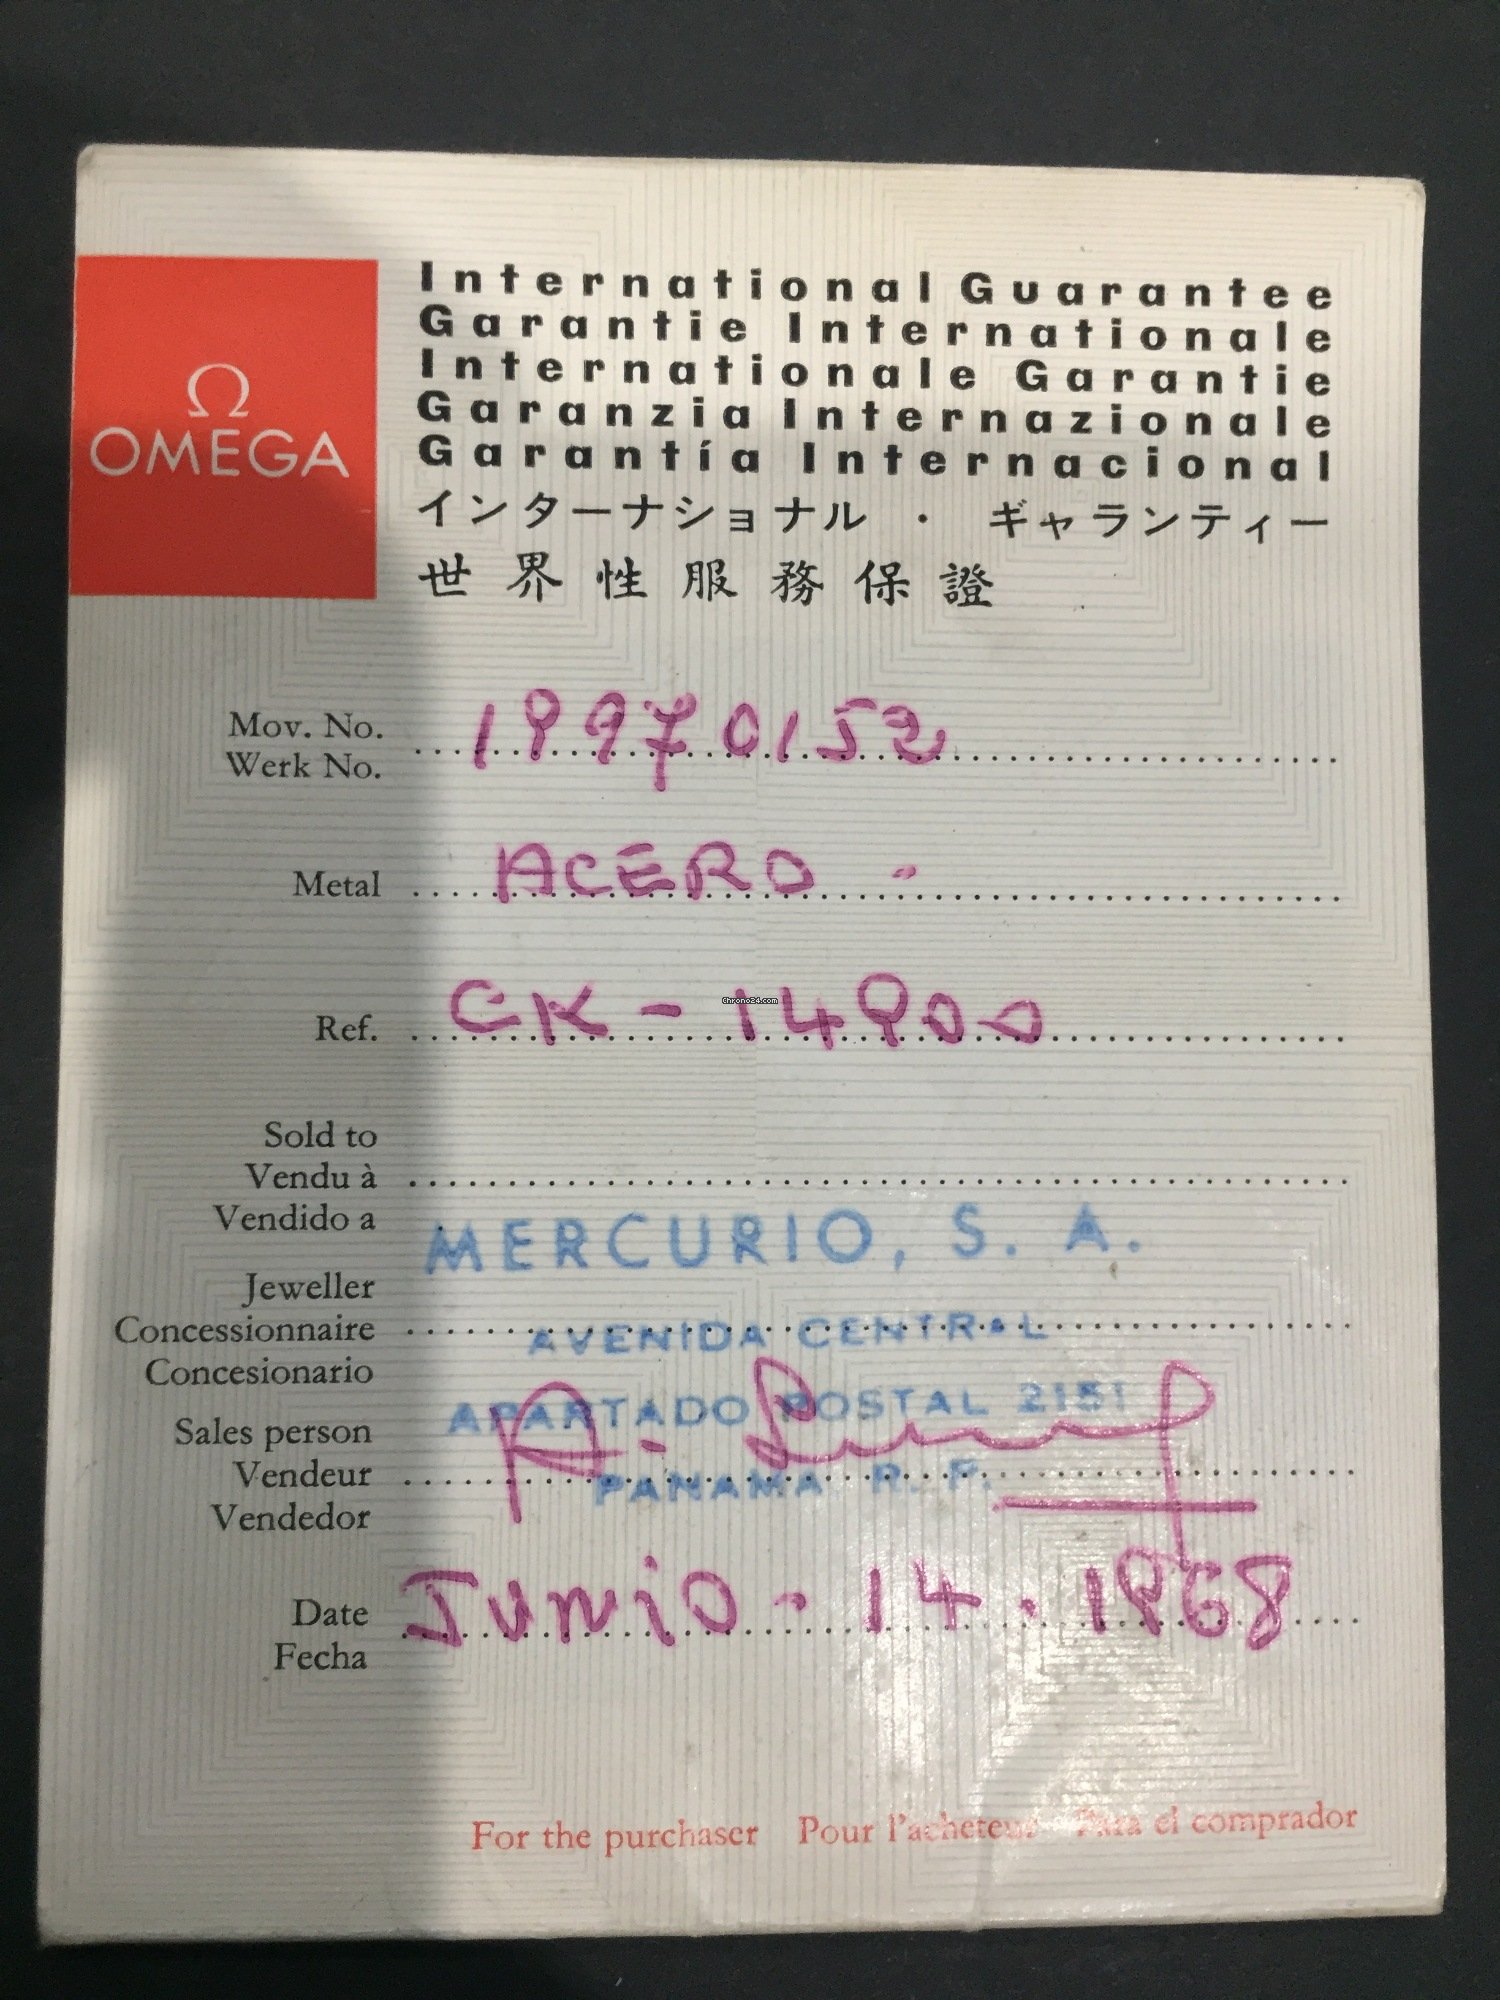 Ω
OMEGA
International Guarantee
Garantie Internationale
Internationale Garantie
Garanzia Internazionale
Garantía Internacional
インターナショナル ・ ギャランティー
世界性服務保證
Mov. No.
Werk No.
19970152
Metal ACERO -
Ref. CK-14900
Chrono24.com
Sold to
Vendu à
Vendido a
MERCURIO, S. A.
Jeweller
Concessionnaire
Concesionario
AVENIDA CENTRAL
APARTADO POSTAL 2151
Sales person
Vendeur
Vendedor
PANAMA R. P.
Date
Fecha
Junio - 14 - 1968
For the purchaser Pour l'acheteur Para el comprador